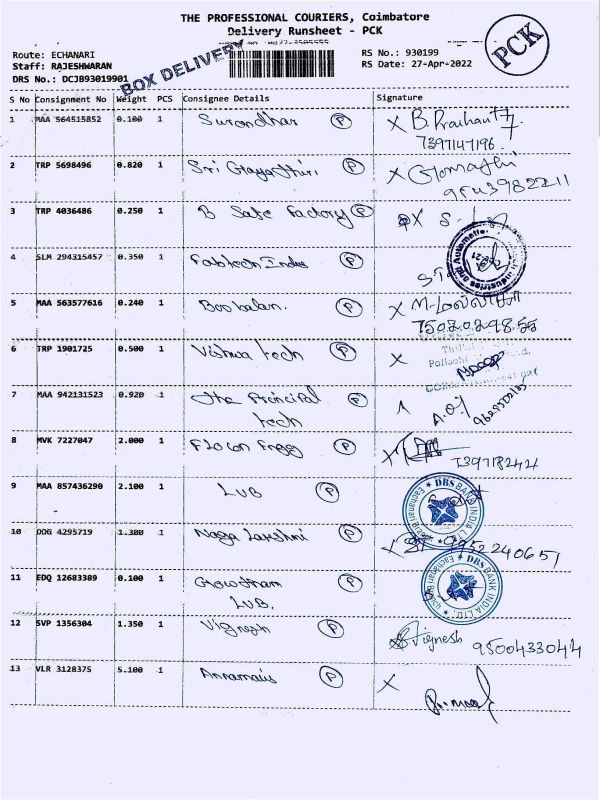 THE PROFESSIONAL COURIERS, Coimbatore
Delivery Runsheet - PCK
PCK
BOX DELIVERY
Route: ECHANARI
Staff: RAJESHWARAN
DRS No.: DCJ893019901
RS No.: 930199
RS Date: 27-Apr-2022
S No Consignment No Weight PCS Consignee Details Signature
1 MAA 564515852 0.100 1 P X B. Prashant
7397147196.
2 TRP 5698496 0.820 1 Sri Gayathiri P X Gomathi
3 TRP 4036486 0.250 1 B Safe Factory P X
4 SLM 294315457 0.350 1 Fabtech Indus P
5 MAA 563577616 0.240 1 P X
7502029855
6 TRP 1901725 0.500 1 Vishwa tech P X
7 MAA 942131523 0.920 1 The Principal P
tech
8 MVK 7227047 2.000 1 Flocon Engg P X
9 MAA 857436290 2.100 1 LUB P
DBS BANK INDIA LTD
10 DDG 4295719 1.300 1 Naga Lakshmi P X 9952240651
11 EDQ 12683389 0.100 1 Gowtham P
LUB.
DBS BANK INDIA LTD
12 SVP 1356304 1.350 1 Vignesh P Vignesh 9500433044
13 VLR 3128375 5.100 1 P X